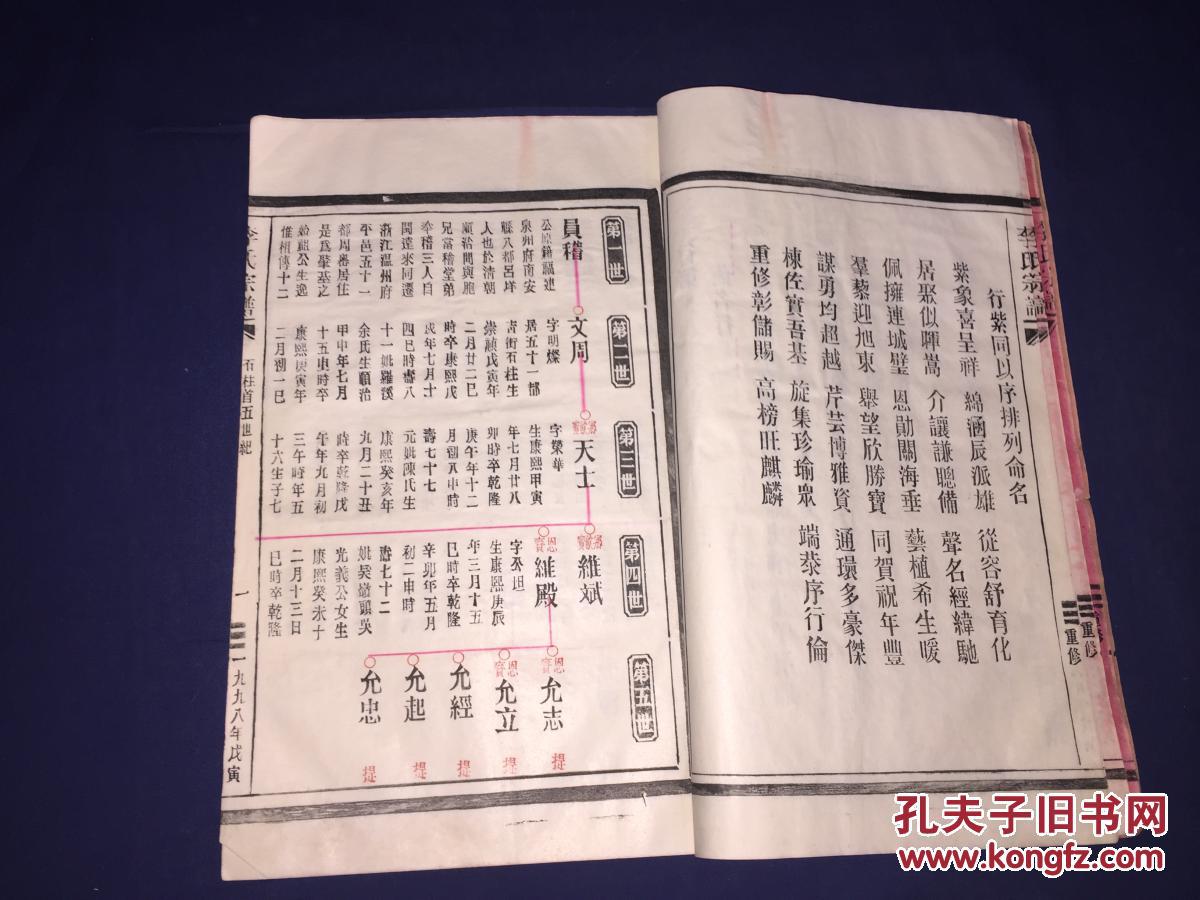 李氏宗譜
行紫同以序排列命名
紫象喜呈祥 綿涵辰派雄 從容舒育化
居聚似暉嵩 介讓謙聰備 聲名經緯馳
佩擁連城璧 恩勛關海垂 藝植希生暖
羣藜迎旭東 舉望欣勝寶 同賀祝年豐
謀勇均超越 芹芸博雅資 通環多豪傑
棟佐實吾基 旋集珍瑜眾 端恭序行倫
重修彰儲賜 高榜旺麒麟
重修
重修
第一世
員稽
公原籍福建
泉州府南安
縣八都呂垟
人也於清朝
順治間與胞
兄當稽堂弟
李稽三人自
閩遶來同遷
浙江溫州府
平邑五十一
都周番居住
是爲肇基之
始祖公生逸
惟相傳十二
第二世
文周
字明燦
居五十一都
青街石柱生
崇禎戊寅年
二月廿二巳
時卒康熙戊
戌年七月十
四巳時壽八
十一妣羅溪
余氏生順治
甲申年七月
十五東時卒
康熙庚寅年
二月初一巳
第三世
天士
字榮華
生康熙甲寅
年七月廿八
卯時卒乾隆
庚午年十二
月初八申時
壽七十七
元妣陳氏生
康熙癸亥年
九月二十丑
時卒乾隆戊
午年九月初
三午時年五
十六生子七
第四世
維斌
維殿
字丕坦
生康熙庚辰
年三月十五
巳時卒乾隆
辛卯年五月
初二申時
壽七十二
妣吳墩頭吳
光義公女生
康熙癸未十
二月十三日
巳時卒乾隆
第五世
允志
允立
允經
允起
允忠
提
提
提
提
提
李氏宗譜
石柱首五世紀
一
一九九八年戊寅
孔夫子旧书网
www.kongfz.com